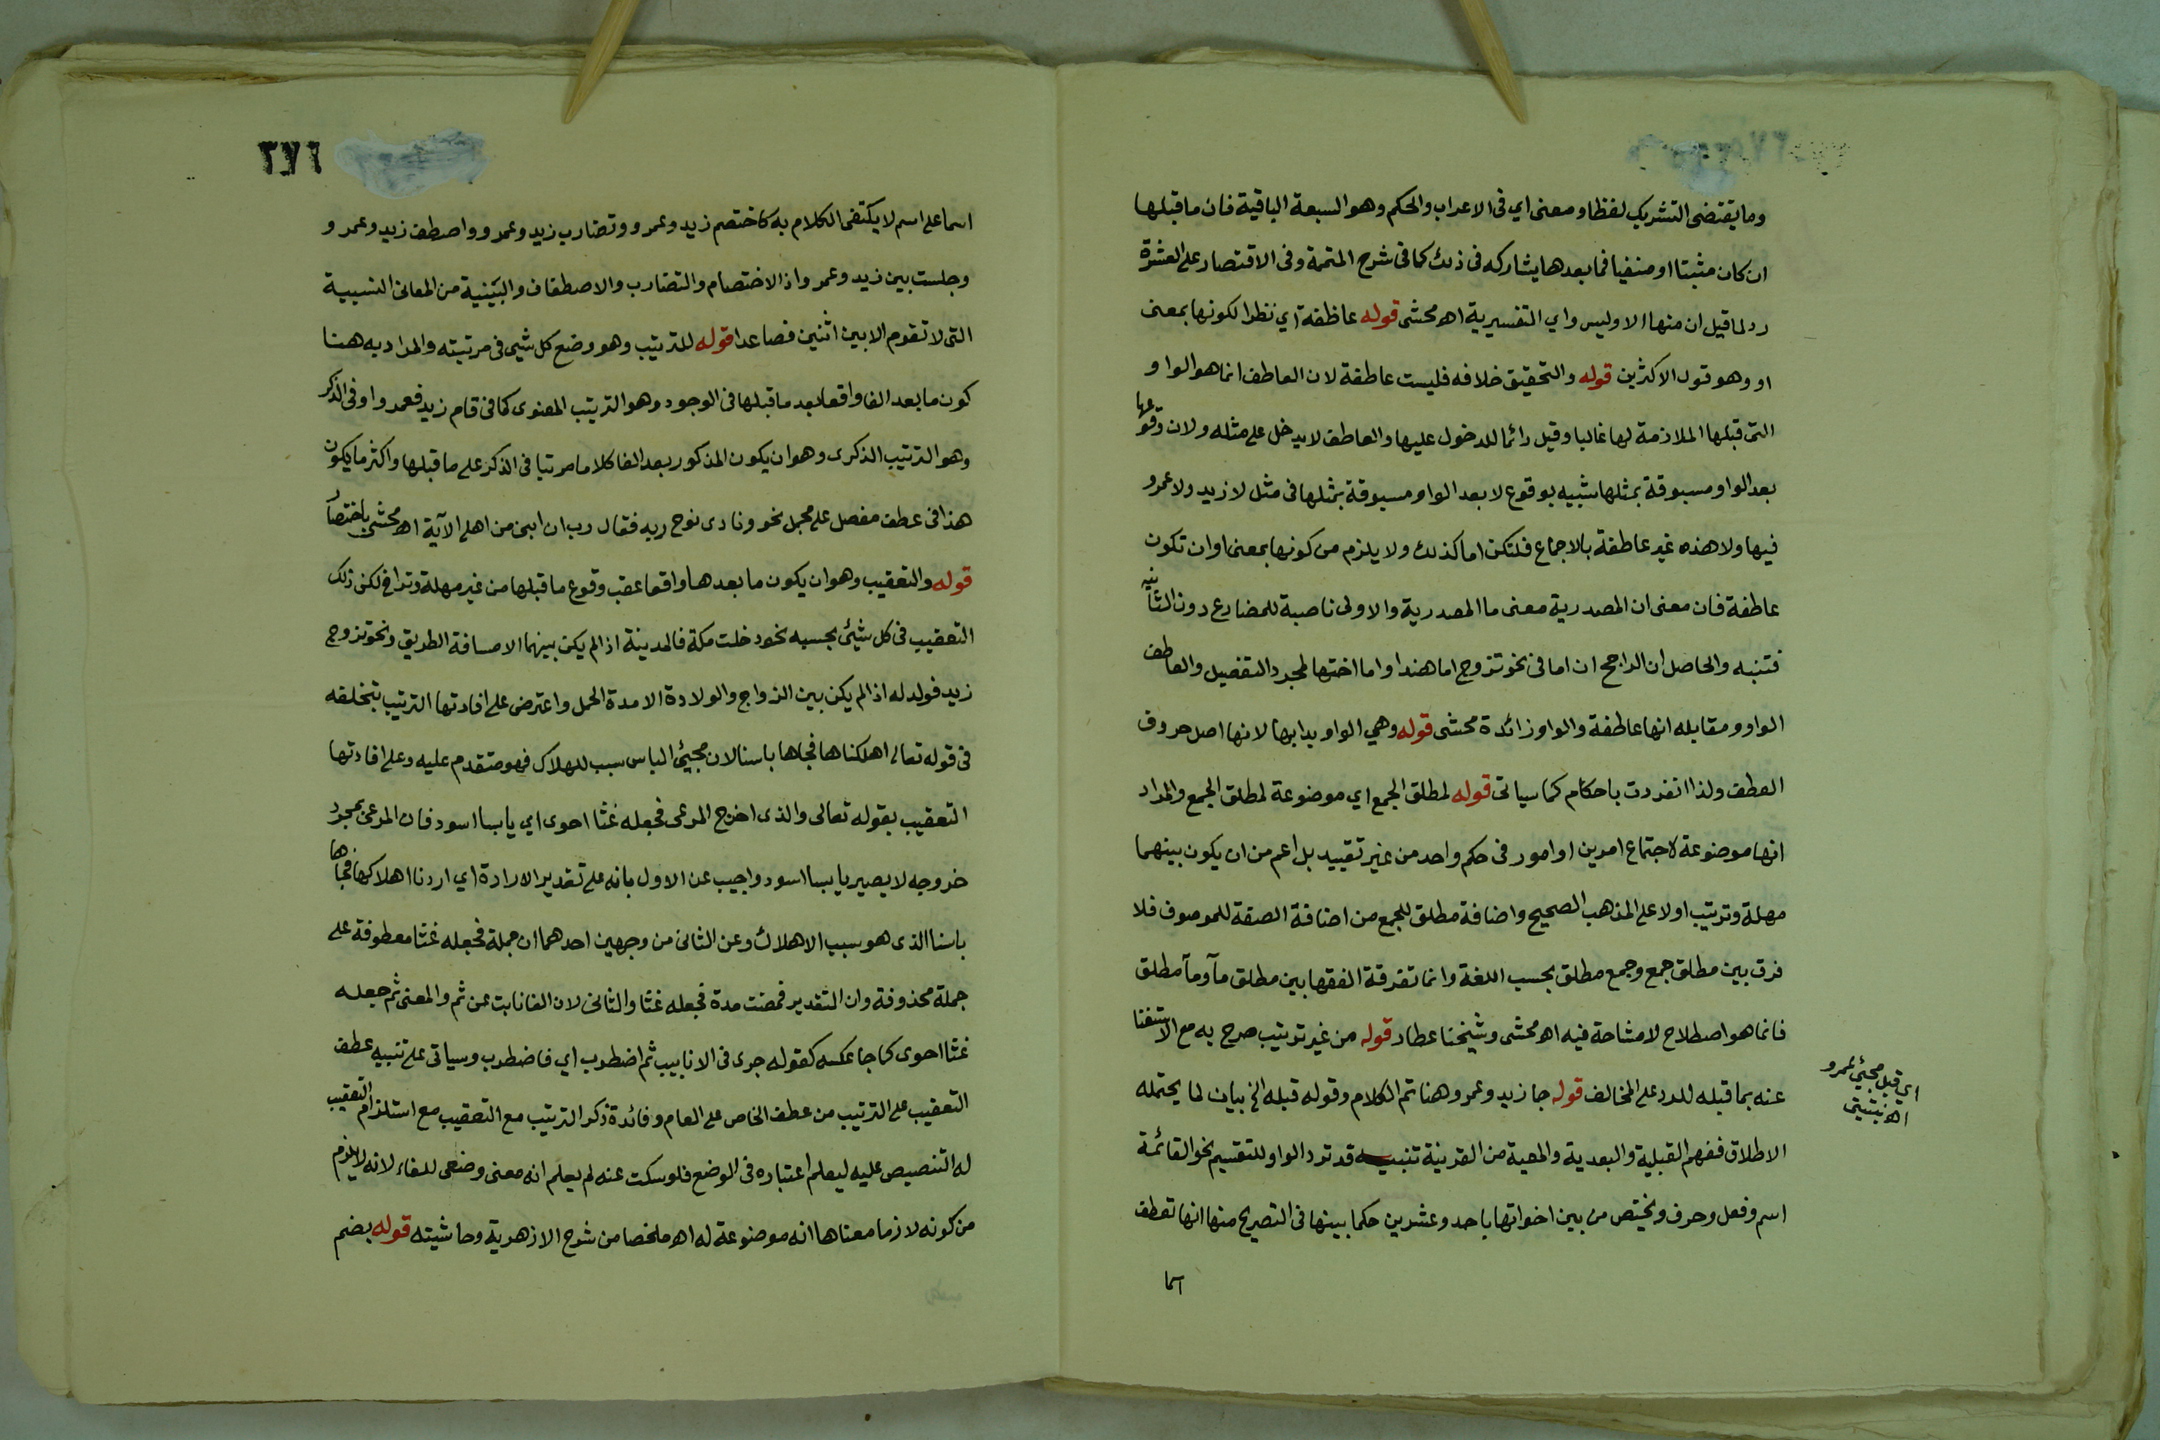 وما يقتضى التشريك لفظا ومعنى اي فى الاعراب والحكم وهو السبعة الباقية فان ما قبلها
ان كان مثبتا او منفيا فما بعدها يشاركه فى ذلك كما فى شرح المتممة وفى الاقتصار على العشرة
رد لما قيل ان منها الا وليس واي التفسيرية اه محشى قوله عاطفة اي نظرا لكونها بمعنى
او وهو قول الاكثرين قوله والتحقيق خلافه فليست عاطفة لان العاطف انما هو الواو
التى قبلها الملازمة لها غالبا وقيل دائما للدخول عليها والعاطف لا يدخل على مثله ولان وقوعها
بعد الواو مسبوقة بمثلها شبيه بوقوع لا بعد الواو مسبوقة بمثلها فى مثل لا زيد ولا عمرو
فيها ولا هذه غير عاطفة بالاجماع فلتكن اما كذلك ولا يلزم من كونها بمعنى او ان تكون
عاطفة فان معنى ان المصدرية معنى ما المصدرية والاولى ناصبة للمضارع دون الثانيه
فتنبه والحاصل ان الراجح ان اما فى نحو تزوج اما هندا واما اختها لمجرد التفصيل والعاطف
الواو ومقابله انها عاطفة والواو زائدة محشى قوله وهي الواو بدا بها لانها اصل حروف
العطف ولذا انفردت باحكام كما سياتى قوله لمطلق الجمع اي موضوعة لمطلق الجمع والمراد
انها موضوعة لاجتماع امرين او امور فى حكم واحد من غير تقييد بل اعم من ان يكون بينهما
مهلة وترتيب اولا على المذهب الصحيح واضافة مطلق للجمع من اضافة الصفة للموصوف فلا
فرق بين مطلق جمع وجمع مطلق بحسب اللغة وانما تفرقة الفقها بين مطلق مآ ومآ مطلق
فانما هو اصطلاح لا مشاحة فيه اه محشى وشيخنا عطار قوله من غير ترتيب صرح به مع الاستغنا
عنه بما قبله للرد على المخالف قوله جا زيد وعمرو هنا تم الكلام وقوله قبله الخ بيان لما يحتمله
الاطلاق ففهم القبلية والبعدية والمعية من القرنية تنبيه قد ترد الواو للتقسيم نحو القائمة
اسم وفعل وحرف وتختص من بين اخواتها باحد وعشرين حكما بينها فى التصريح منها انها تعطف
اسما
اي قبل مجيئ عمرو
٣٧٦
اسما على اسم لا يكتفى الكلام به كاختصم زيد وعمرو وتضارب زيد وعمرو واصطف زيد وعمرو
وجلست بين زيد وعمرو اذ الاختصام والتضارب والاصطفاف والبينية من المعانى النسبية
التى لا تقوم الا بين اثنين فصاعدا قوله للترتيب وهو وضع كل شيى فى مرتبته والمراد به هنا
كون ما بعد الفا واقعا بعد ما قبلها فى الوجود وهو الترتيب المعنوى كما فى قام زيد فعمرو او فى الذكر
وهو الترتيب الذكرى وهو ان يكون المذكور بعد الفا كلاما مرتبا فى الذكر على ما قبلها واكثر ما يكون
هذا فى عطف مفصل على مجمل نحو ونادى نوح ربه فقال رب ان ابنى من اهلى الآية اه محشى باختصار
قوله والتعقيب وهو ان يكون ما بعدها واقعا عقب وقوع ما قبلها من غير مهلة وتراخ لكن ذلك
التعقيب فى كل شيئ بحسبه نحو دخلت مكة فالمدينة اذا لم يكن بينهما الا مسافة الطريق ونحو تزوج
زيد فولد له اذا لم يكن بين الزواج والولادة الا مدة الحمل واعترض على افادتها الترتيب بتخلفه
فى قوله تعالى اهلكناها فجاها باسنا لان مجيئ الباس سبب للهلاك فهو متقدم عليه وعلى افادتها
التعقيب بقوله تعالى والذى اخرج المرعى فجعله غثا احوى اي يابسا اسود فان المرعى بمجرد
خروجه لا يصير يابسا اسود واجيب عن الاول بانه على تقدير الارادة اي اردنا اهلاكها فجاها
باسنا الذى هو سبب الاهلاك وعن الثانى من وجهين احدهما ان جملة فجعله غثا معطوفة على
جملة محذوفة وان التقدير فمضت مدة فجعله غثا والثانى لان الفا نابت عن ثم والمعنى ثم جعله
غثا احوى كما جا عكسه كقوله جرى فى الانابيب ثم اضطرب اي فاضطرب وسياتى على تنبيه عطف
التعقيب على الترتيب من عطف الخاص على العام وفائدة ذكر الترتيب مع التعقيب مع استلزام التعقيب
له التنصيص عليه ليعلم اعتباره فى الوضع فلو سكت عنه لم يعلم انه معنى وضعى للفاء لانه لا يلزم
من كونه لازما معناها انه موضوعة له اه ملخصا من شرح الازهرية وحاشيته قوله بضم